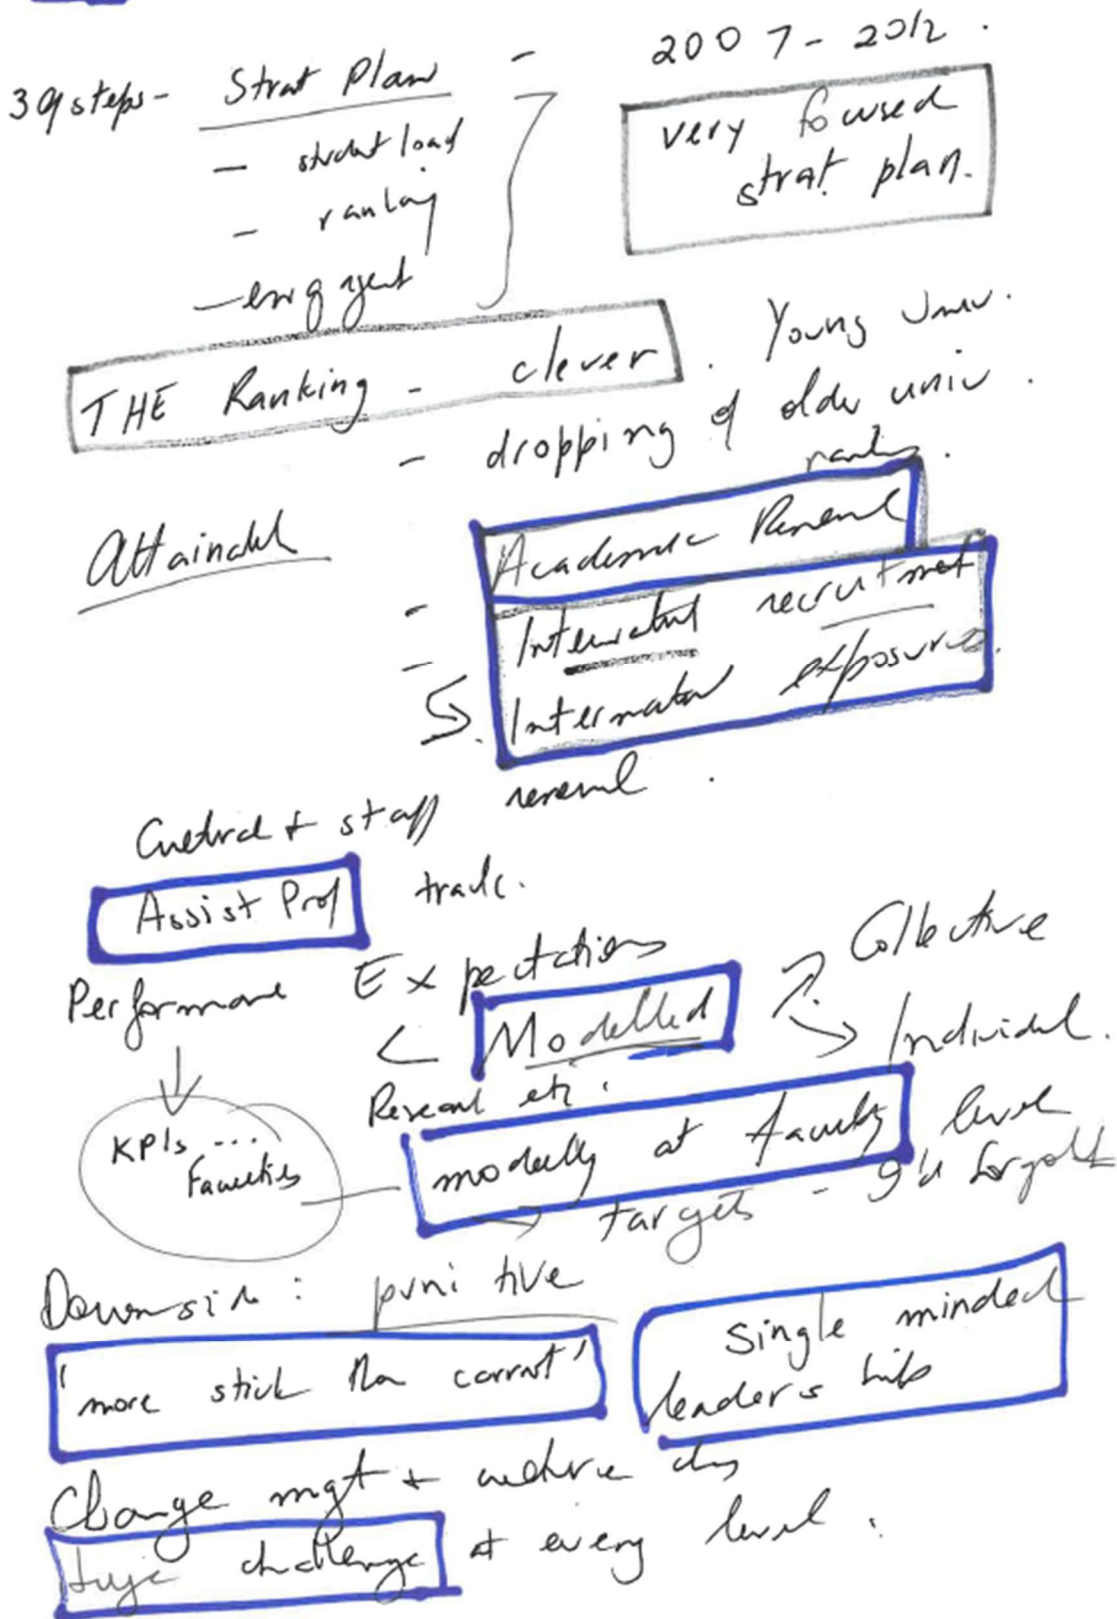 2007 - 2012.
39 steps - Strat Plan -
- student load
- ranking
- engagent
very focused
strat plan.
THE Ranking - clever. Young Univ.
- dropping of older univ.
ranking.
Academic Renewal
- International recruitment
- Internation exposure.
renewal.
Cultural + staff
Assist Prof track.
Performance Expectations
< Modelled
Collective
Individual.
Research etc.
KPIs ...
Faculties
modelling at Faculty level
→ targets -
Downside: punitive
'more stick than carrot'
Single minded
leadership
Change mgt + culture chg
huge challenge at every level.